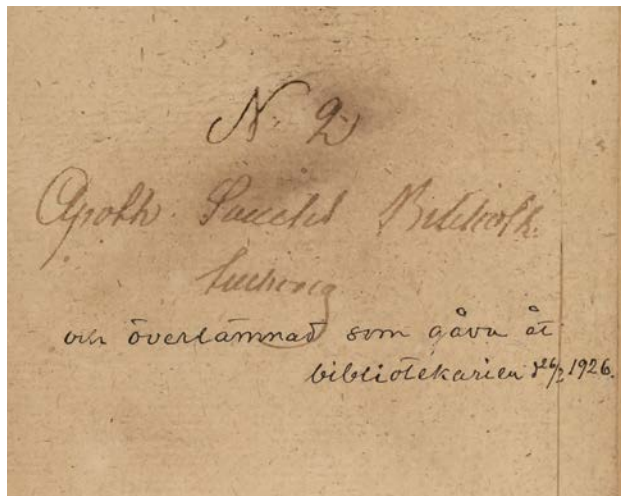 N. 2
Apoth. Societ. Biblioth.
tillhörig
och överlämnad som gåva åt
bibliotekarien d 26/2 1926.